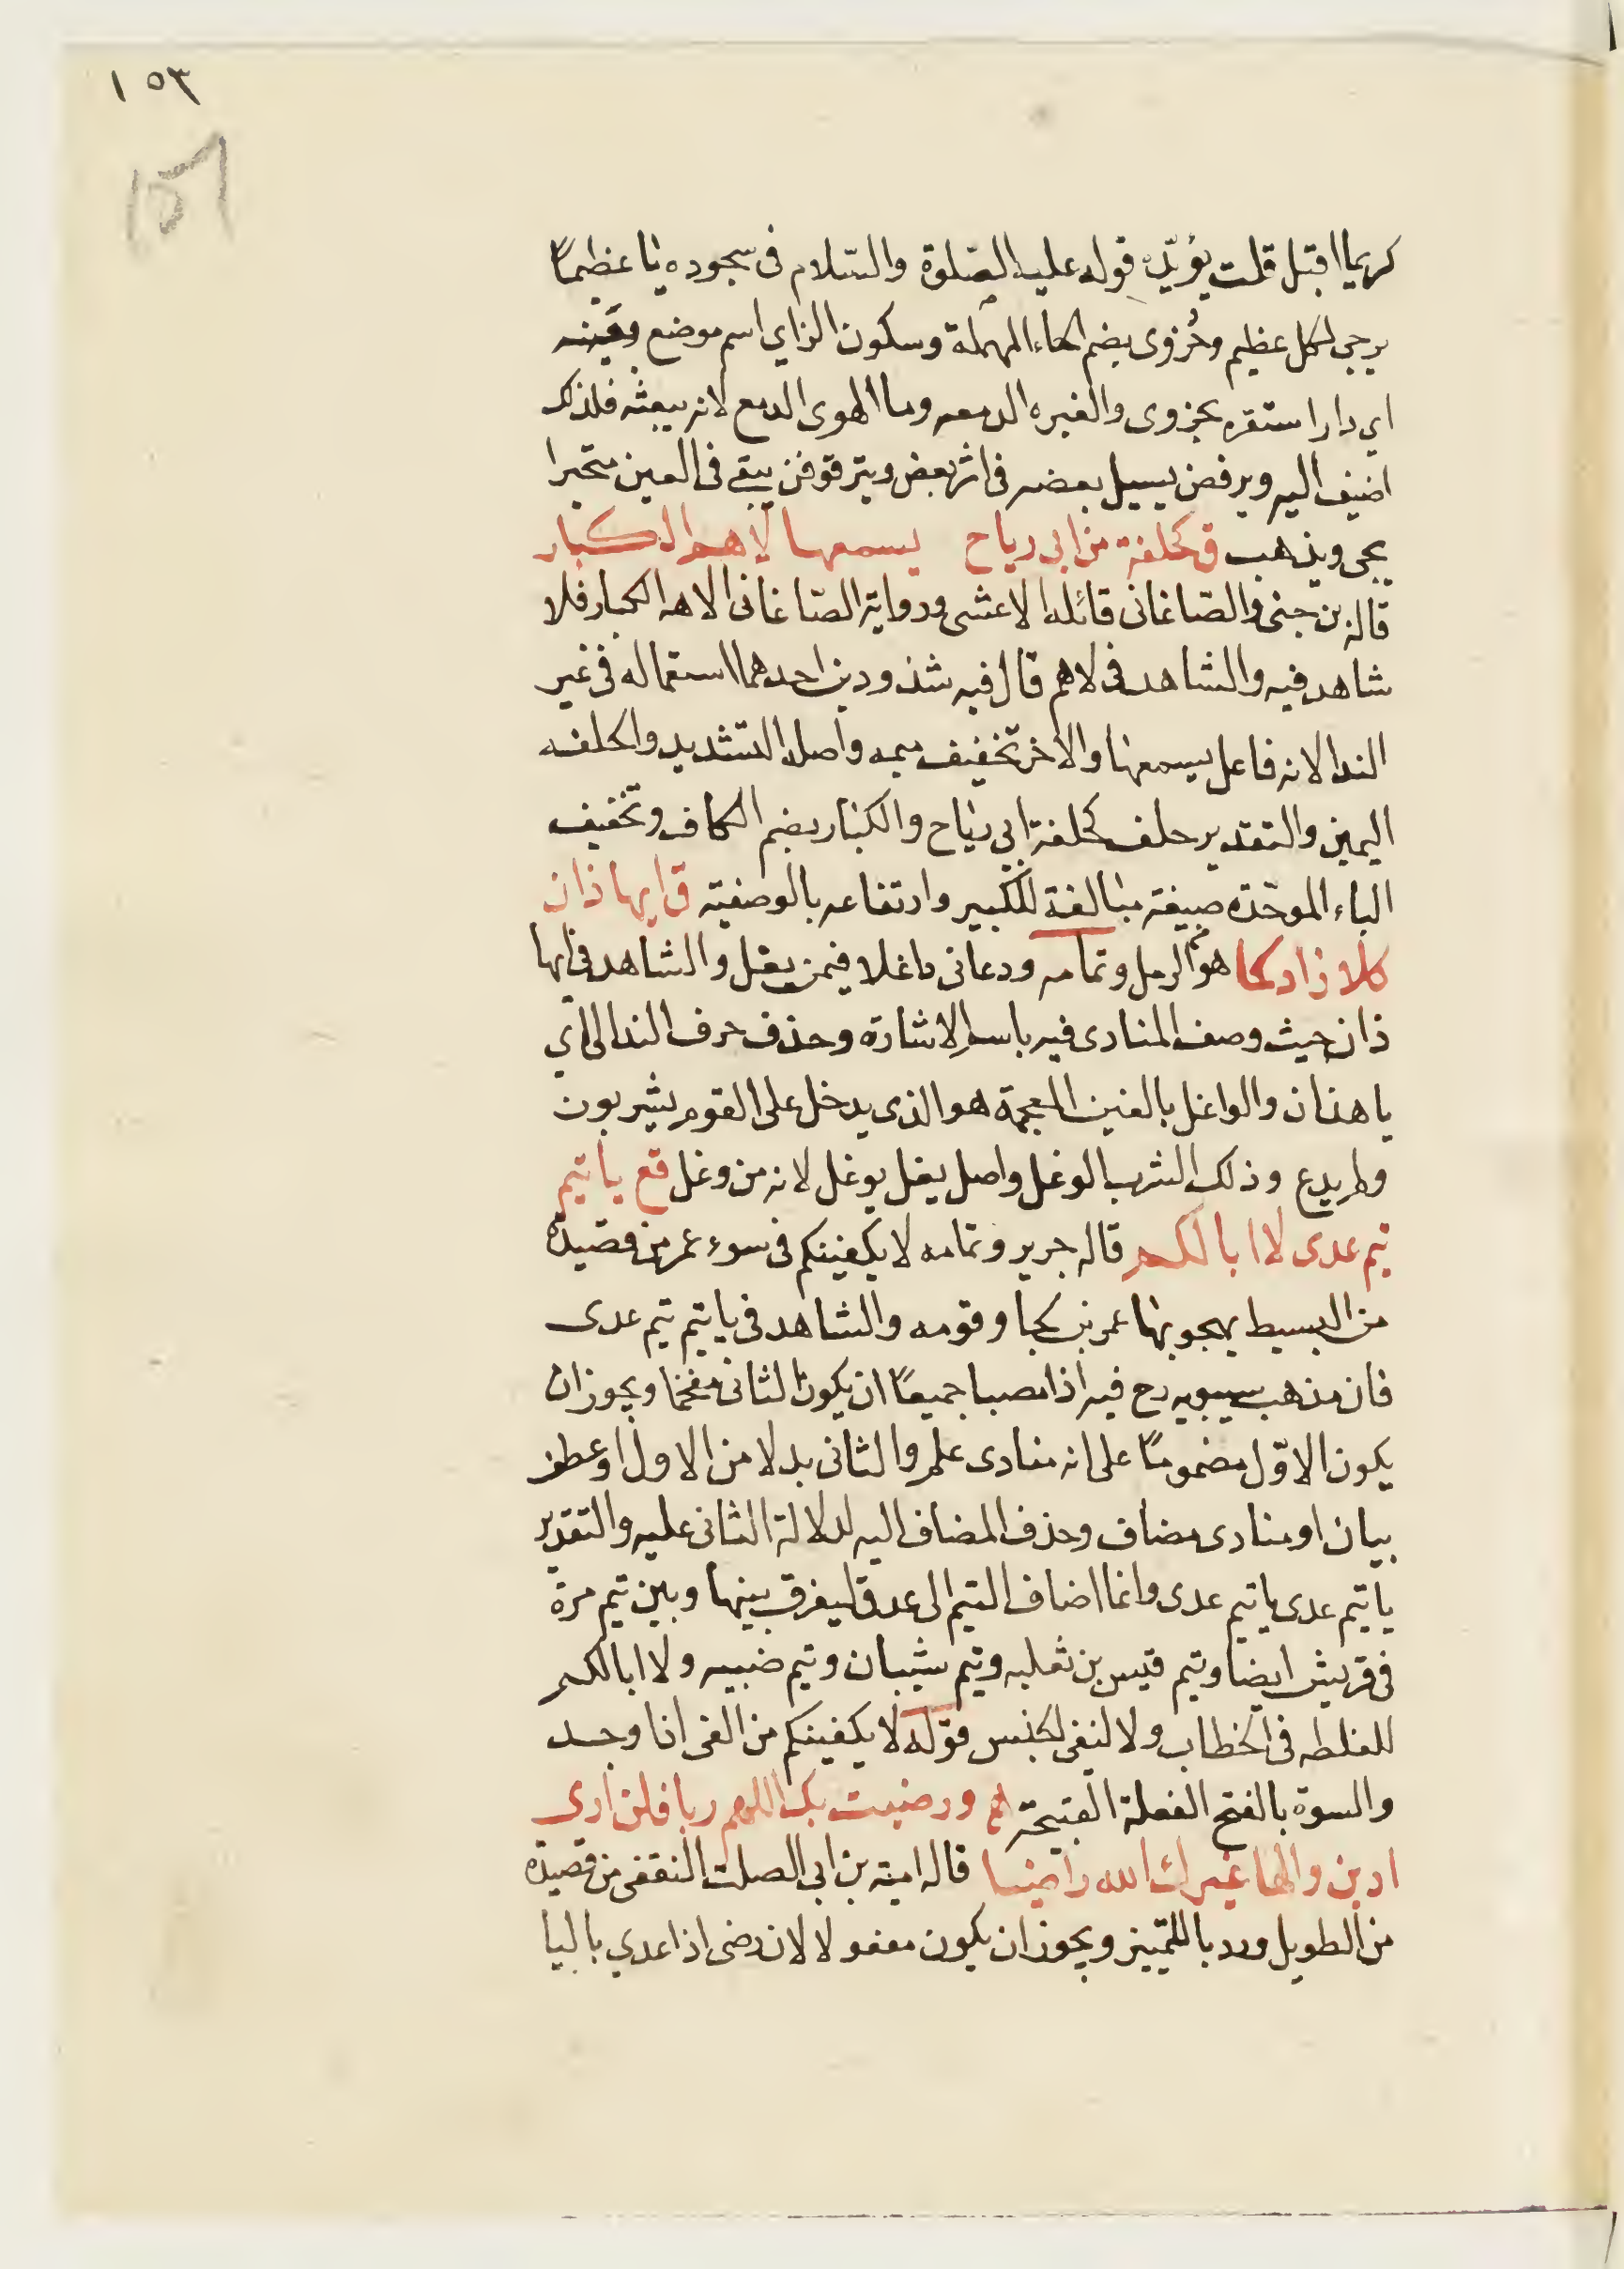 ١٥٣
١٥٢
كريما اقبل قلت يؤيّده قوله عليه الصّلوة والسّلام في سجوده يا عظيماً
يرجى لكل عظيم وحُزوى بضم الحاء المهملة وسكون الزاي اسم موضع
اي دارا استقره بحزوى والغبره الدمعه وماا لهوى الدمع لانه يبعثه فلذلك
اضيف اليه ويرفض يسيل بعضه في اثر بعض ويترقوقن يبقى في العين متحيرا
يجى ويذهب ق كحلفة من ابى رياح يسمعها لاهم الكبار
قاله بن جنى والصّاغانى قائله الاعشى ورواية الصّاغانى الاهه الكبار فلا
شاهد فيه والشاهد في لاهم قال فيه شذوذين احدهما استعماله في غير
الندا لانه فاعل يسمعها والاخر تخفيف ميمه واصله التشديد والحلفه
اليمين والتقدير حلف كحلفة ابي رياح والكبار بضم الكاف وتخفيف
الباء الموحّدة صيغة مبالغة للكبير وارتفاعه بالوصفية ق ايها ذان
كلا زادكما هو الرمل وتمامه ودعانى داغلا فيمن يغل والشاهد في ايها
ذان حيث وصف المنادى فيه باسم الاشارة وحذف حرف الندا اى
يا هذان والواغل بالغين المعجمة هو الذى يدخل على القوم يشربون
ولم يدع وذلك الشرب الوغل واصل يغل يوغل لانه من وغل قع يا تيم
تيم عدى لا ابا لكم قاله جرير وتمامه لا يكفينكم في سوء عمر من قصيدة
من البسيط يهجو بها عمر بن لجا وقومه والشاهد في يا تيم تيم عدى
فان مذهب سيبويه رح فيه اذا نصبا جميعاً ان يكون الثانى مفخما ويجوز ان
يكون الاوّل مضموماً على انه منادى علم والثانى بدلا من الاول او عطف
بيان او منادى مضاف وحذف المضاف اليه لدلالة الثانى عليه والتقدير
يا تيم عدى يا تيم عدى وانما اضاف التيم الى عدى ليفرق بينها وبين تيم مرة
في قريش ايضا وتيم قيس بن ثعلبه وتيم شيبان وتيم ضبيه ولا ابا لكم
للغلطه في الخطاب ولا لنفى لجنس قوله لا يكفينكم من الفى اذا وجد
والسوة بالفتح الفعلة القبيحة هم ورضيت بك اللهم ربا فلن ارى
ادين والها غيرك الله راضيا قاله امية بن ابى الصلت الثقفى من قصيدة
من الطويل وربا للتمييز ويجوز ان يكون مفعولا لان رضى اذا عدي باليا